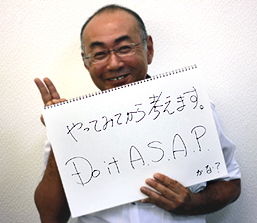 やってみてから考えます。
Do it A.S.A.P.
かな?